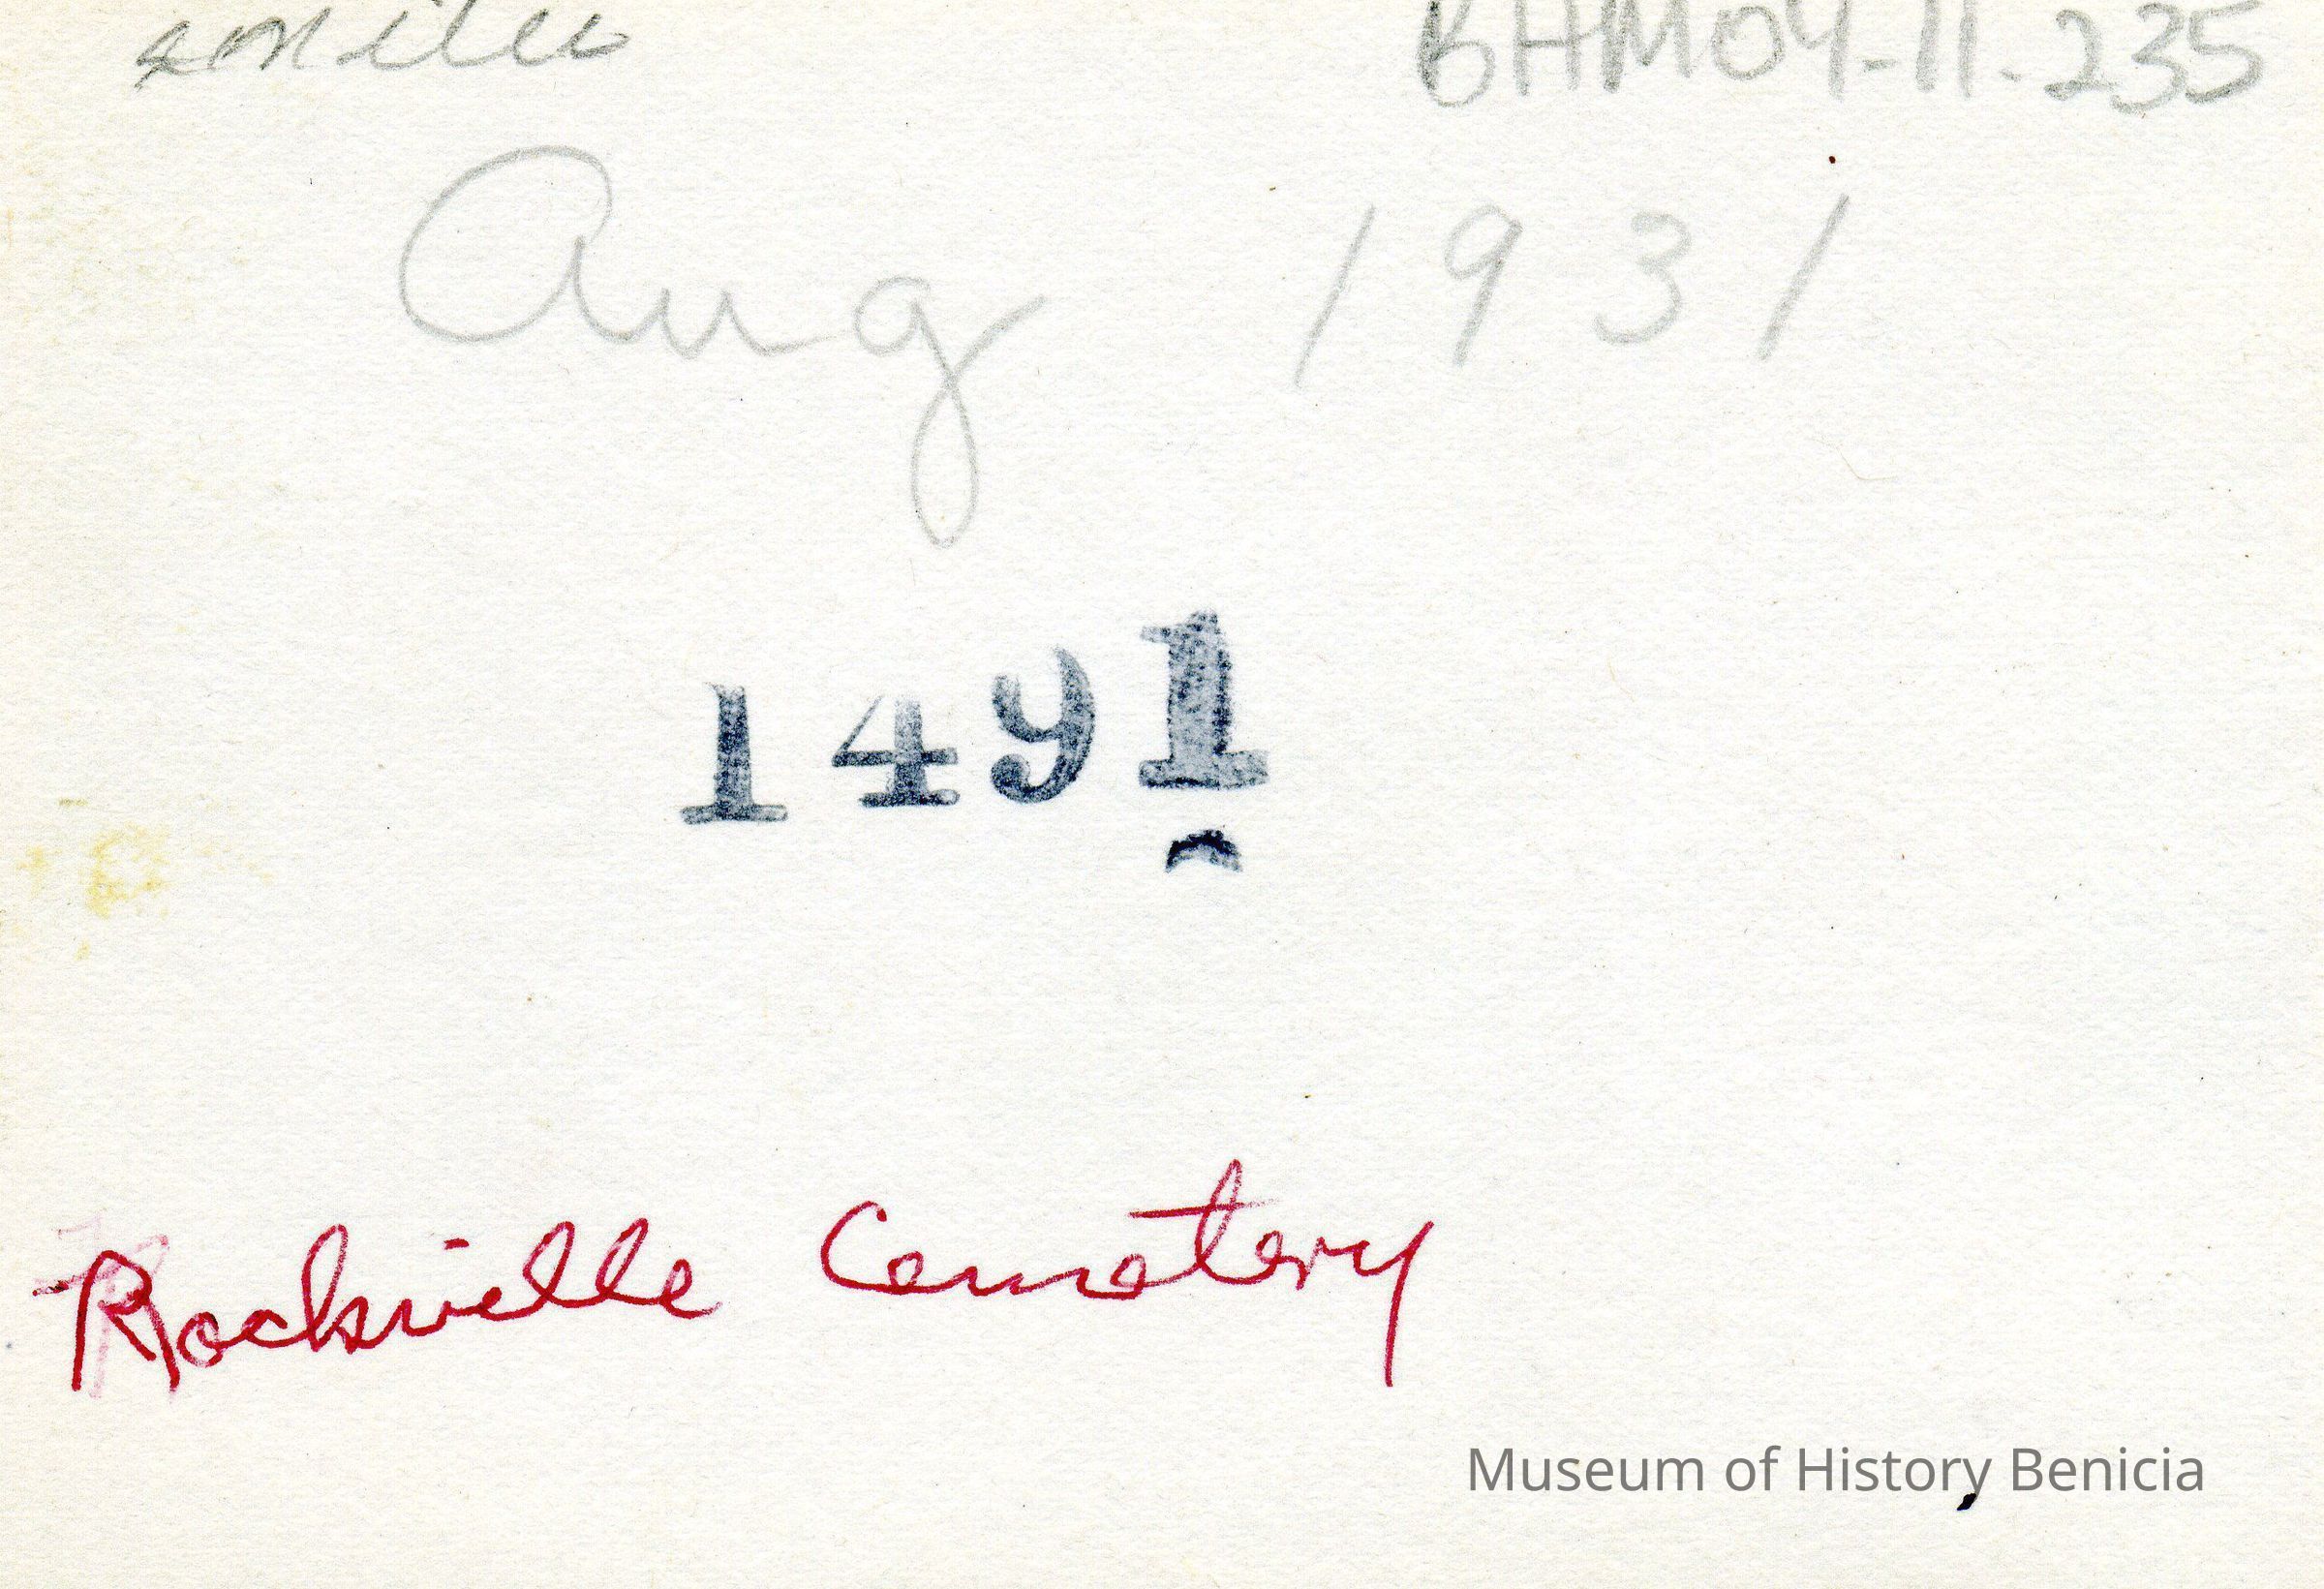 BHM04-11-235
Aug 1931
1491
Rockville Cemetery
Museum of History Benicia